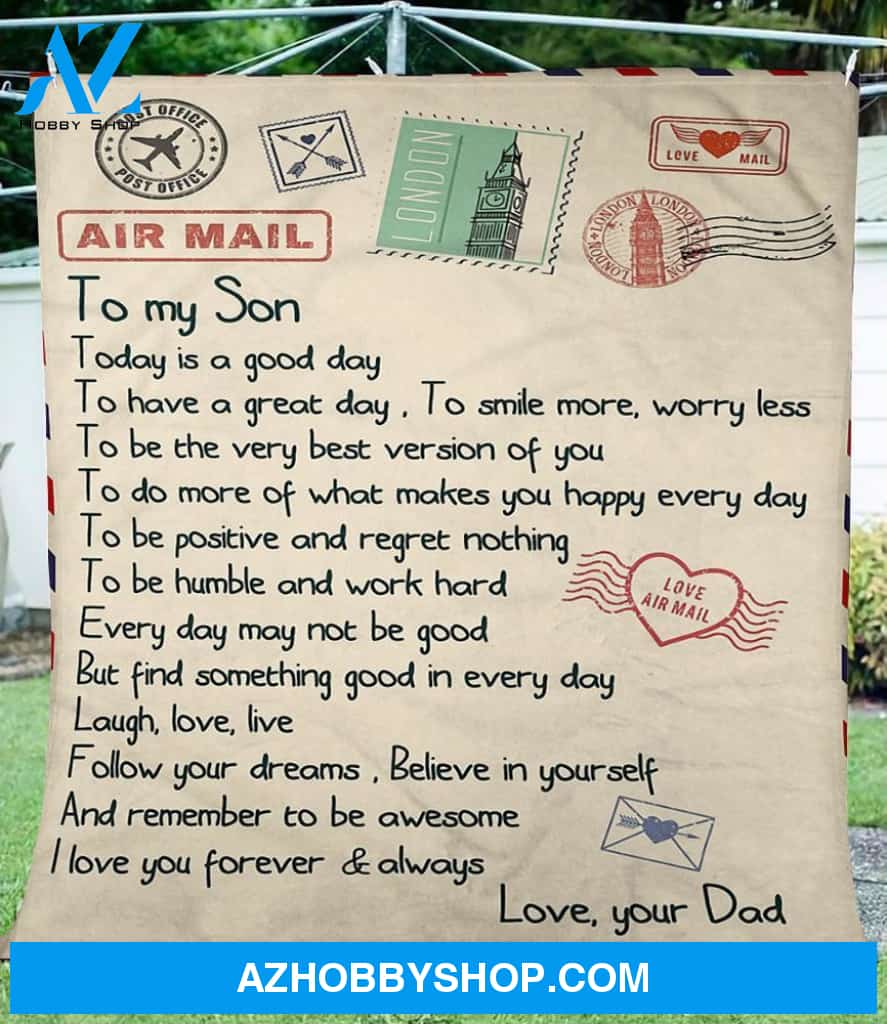 AZ
HOBBY SHOP
POST OFFICE
POST OFFICE
LONDON
LOVE MAIL
LONDON LONDON
LONDON LONDON
AIR MAIL
To my Son
Today is a good day
To have a great day , To smile more, worry less
To be the very best version of you
To do more of what makes you happy every day
To be positive and regret nothing
To be humble and work hard
LOVE
AIR MAIL
Every day may not be good
But find something good in every day
Laugh, love, live
Follow your dreams , Believe in yourself
And remember to be awesome
I love you forever & always
Love, your Dad
AZHOBBYSHOP.COM